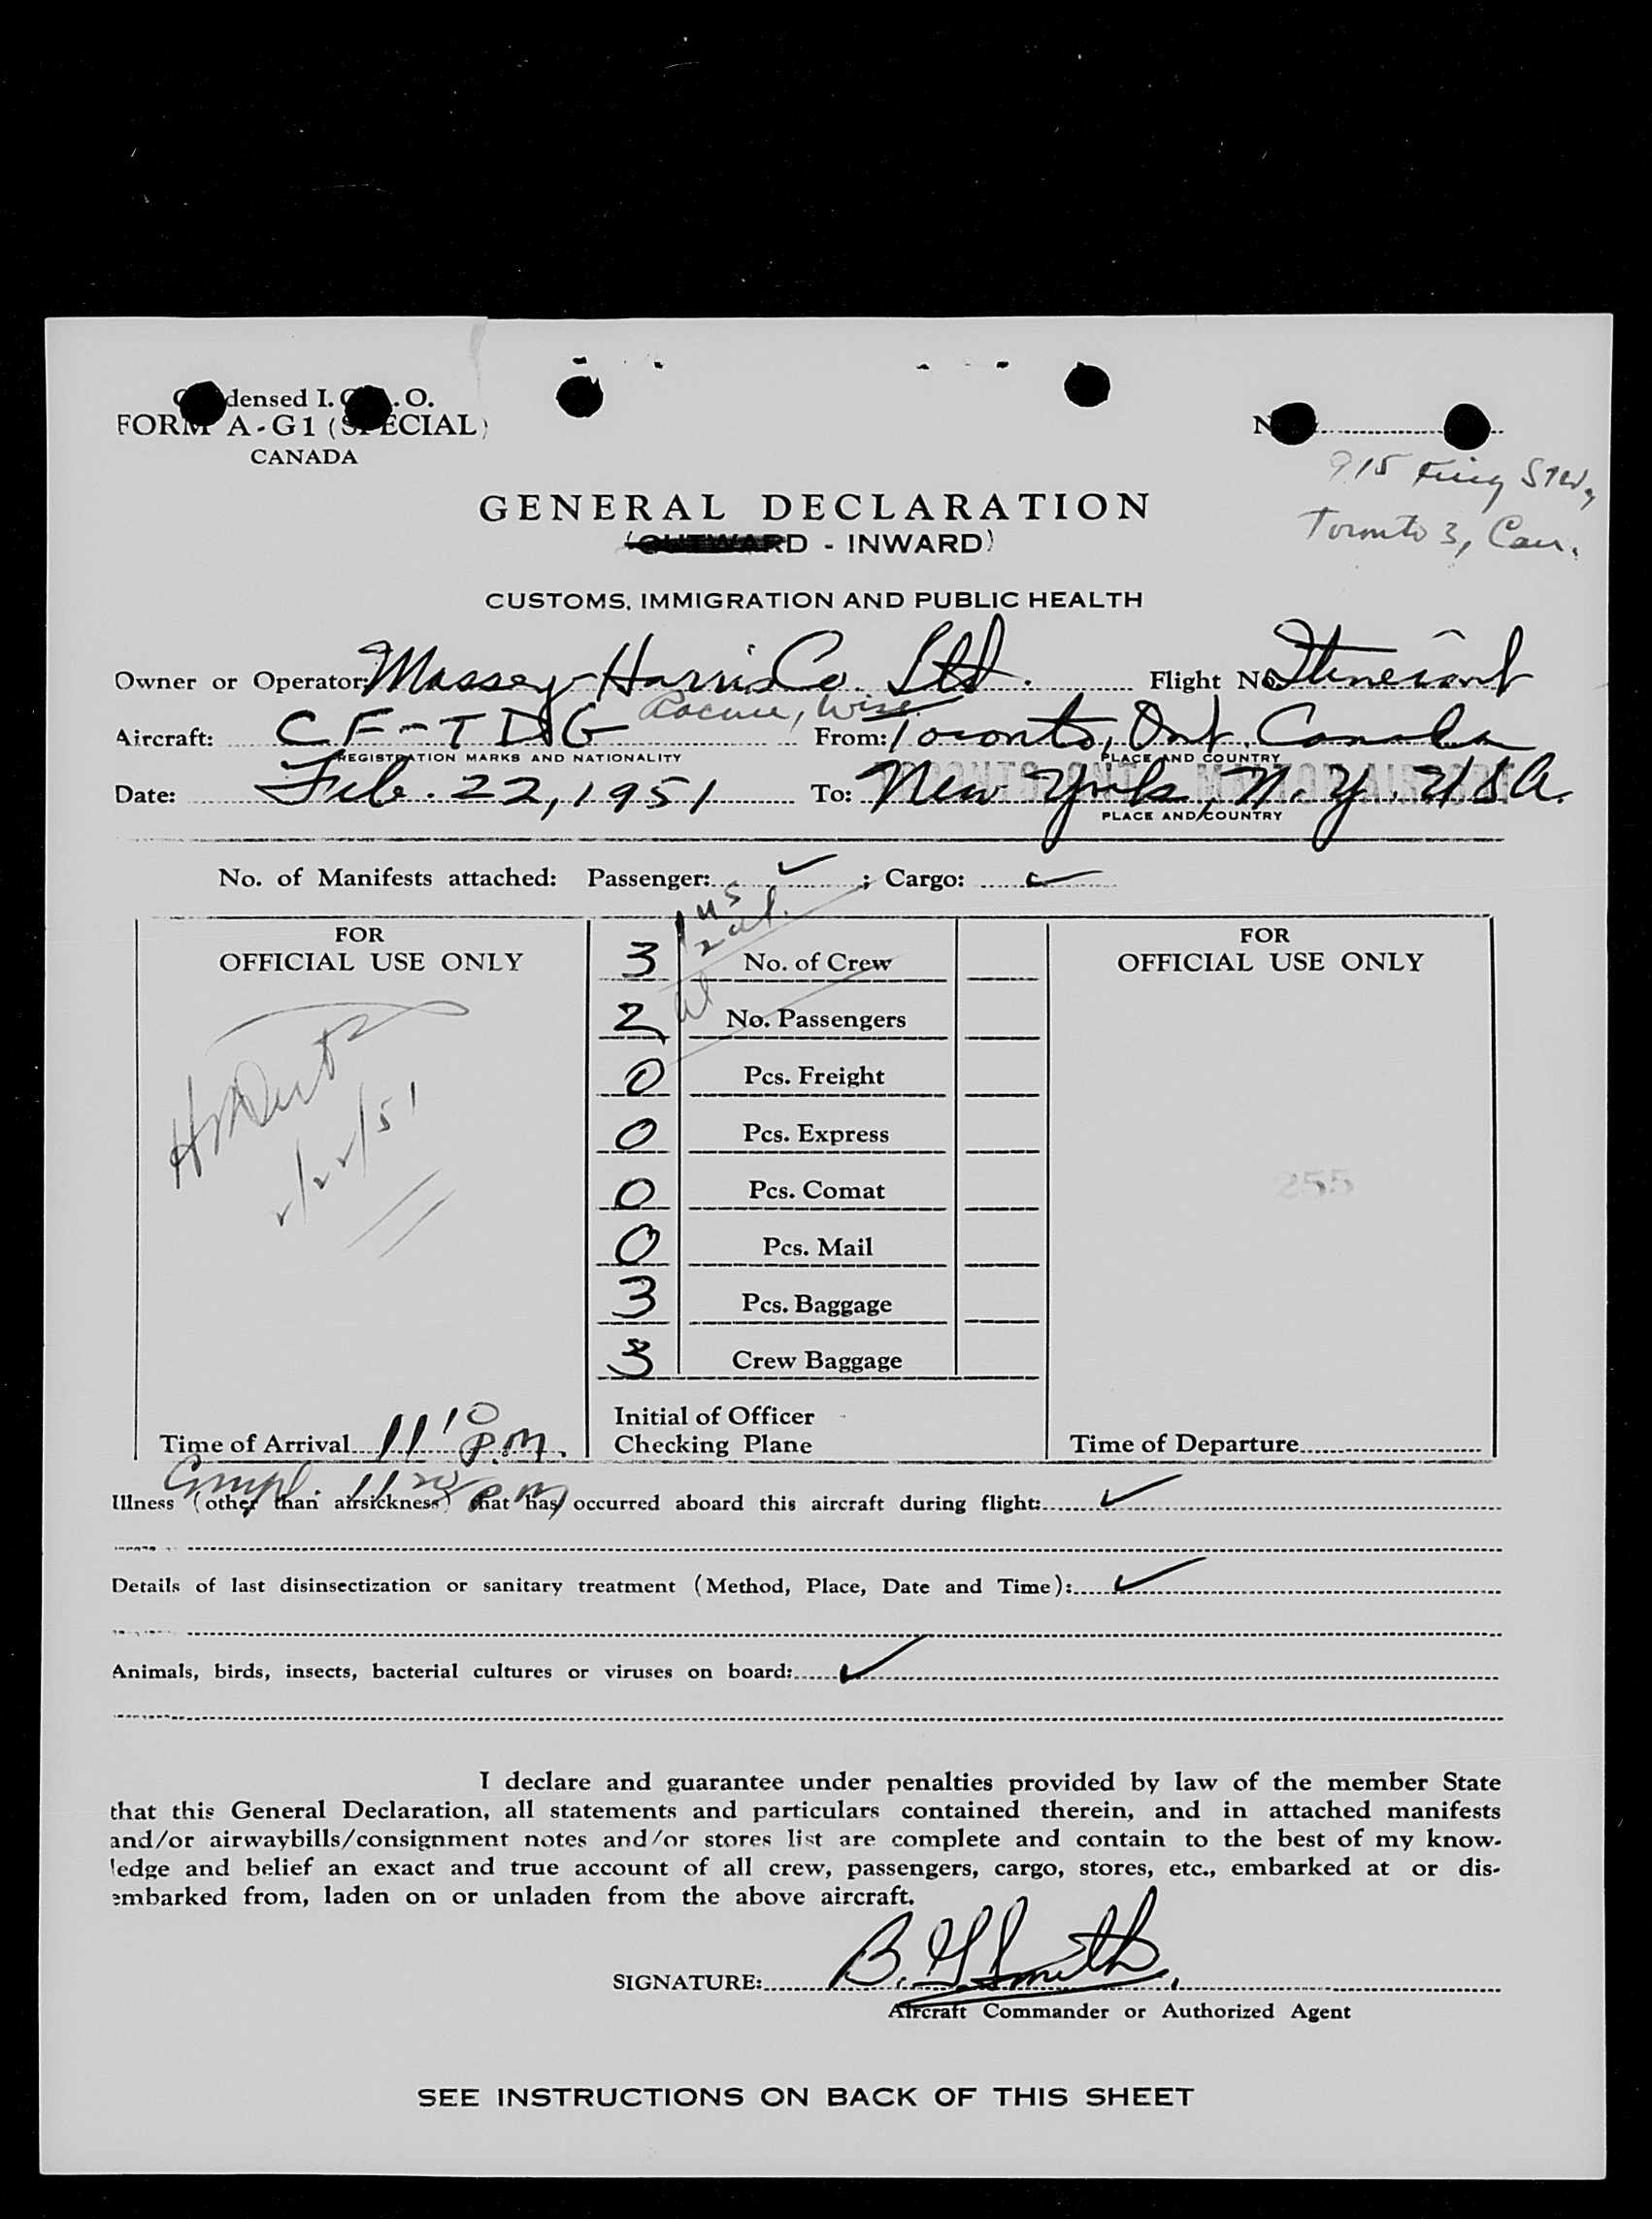 densed I. O.
FORM A-G1 (SPECIAL)
CANADA
915 King St W,
Toronto 3, Can.
GENERAL DECLARATION
(OUTWARD - INWARD)
CUSTOMS, IMMIGRATION AND PUBLIC HEALTH
Owner or Operator: Massey-Harris Co. Ltd. Flight No. Itinerant
Racine, Wisc.
Aircraft: CF-TDG From: Toronto, Ont. Canada
REGISTRATION MARKS AND NATIONALITY PLACE AND COUNTRY
TORONTO, ONT. MALTON AIRPORT
Date: Feb. 22, 1951 To: New York, N.Y. USA.
PLACE AND COUNTRY
No. of Manifests attached: Passenger: ✓; Cargo: ✓
FOR
OFFICIAL USE ONLY
1 us
2 al.
3 No. of Crew
2 No. Passengers
0 Pcs. Freight
0 Pcs. Express
0 Pcs. Comat
0 Pcs. Mail
3 Pcs. Baggage
3 Crew Baggage
FOR
OFFICIAL USE ONLY
2/22/51
255
Time of Arrival 11 10 P.M.
Initial of Officer
Checking Plane
Time of Departure
Compl. 11 20 PM
Illness (other than airsickness) that has occurred aboard this aircraft during flight: ✓
Details of last disinsectization or sanitary treatment (Method, Place, Date and Time): ✓
Animals, birds, insects, bacterial cultures or viruses on board: ✓
I declare and guarantee under penalties provided by law of the member State
that this General Declaration, all statements and particulars contained therein, and in attached manifests
and/or airwaybills/consignment notes and/or stores list are complete and contain to the best of my know-
ledge and belief an exact and true account of all crew, passengers, cargo, stores, etc., embarked at or dis-
embarked from, laden on or unladen from the above aircraft.
SIGNATURE: B. G. Smith
Aircraft Commander or Authorized Agent
SEE INSTRUCTIONS ON BACK OF THIS SHEET